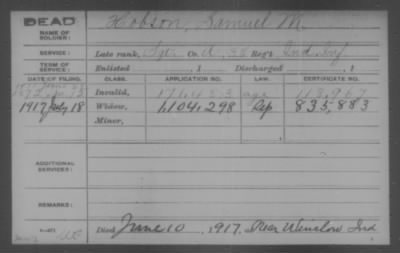 DEAD
NAME OF SOLDIER: Hobson, Samuel M.
SERVICE: Late rank, Co. A, 58 Reg't Ind. Inf
TERM OF SERVICE: Enlisted , 1 Discharged , 1
DATE OF FILING. CLASS. APPLICATION NO. LAW. CERTIFICATE NO.
Invalid, 171,453 age 113,967
1917 July 18 Widow, 1,104,298 Rep 835,883
Minor,
ADDITIONAL SERVICES:
REMARKS:
Died June 10, 1917, Near Winslow Ind